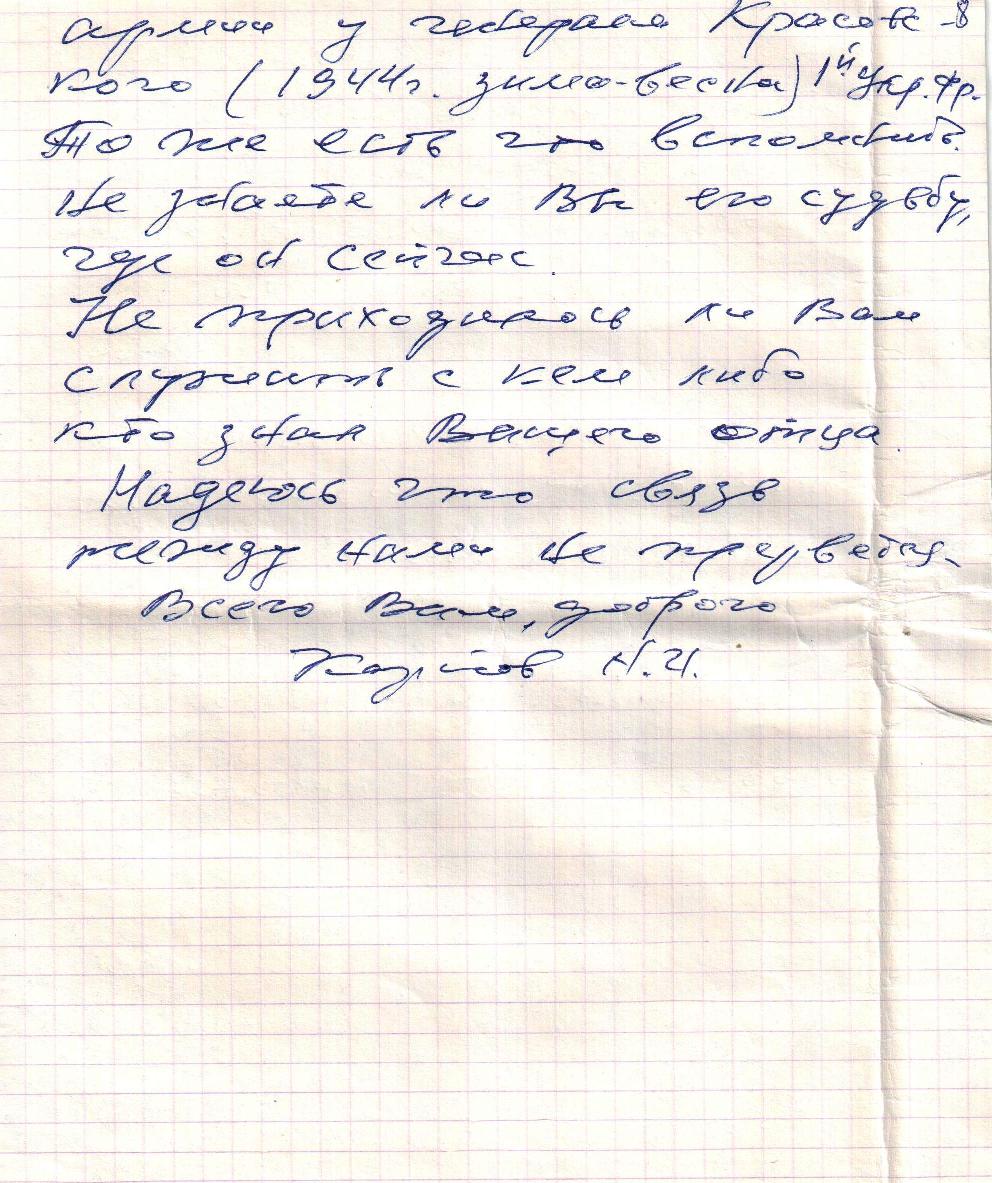 армии у генерала Красовс-
кого (1944г. зимо-весна) 1й Укр.Фр.
То же есть что вспомнить.
Не знаете ли Вы его судьбу,
где он сейчас.
Не приходилось ли Вам
служить с кем либо
кто знал Вашего отца
Надеюсь что связь
между нами не прервется.
Всего Вам, доброго
Н.И.